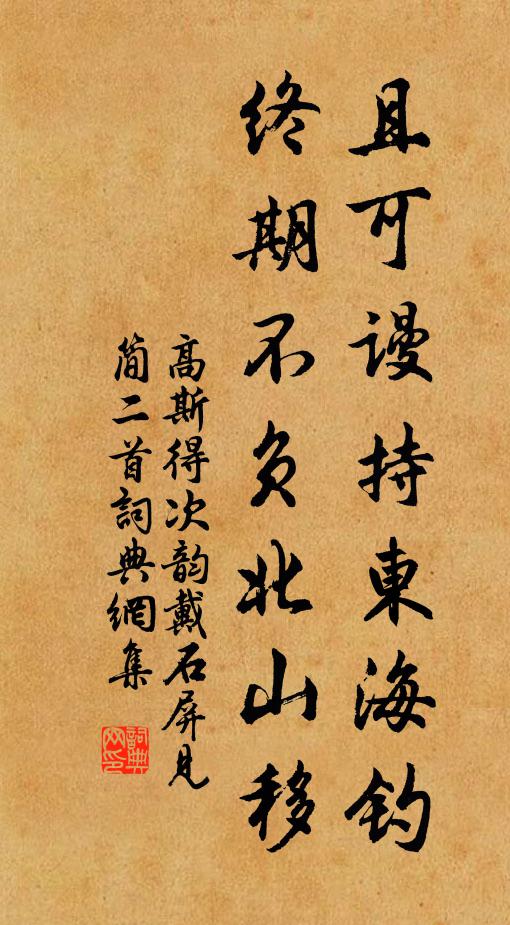 且可谩持東海钓
终期不负北山移
高斯得次韵戴石屏见
简二首詞典網集
詞典
网印